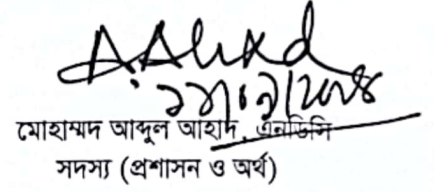 A.Ahad
মোহাম্মদ আব্দুল আহাদ, এনডিসি
সদস্য (প্রশাসন ও অর্থ)